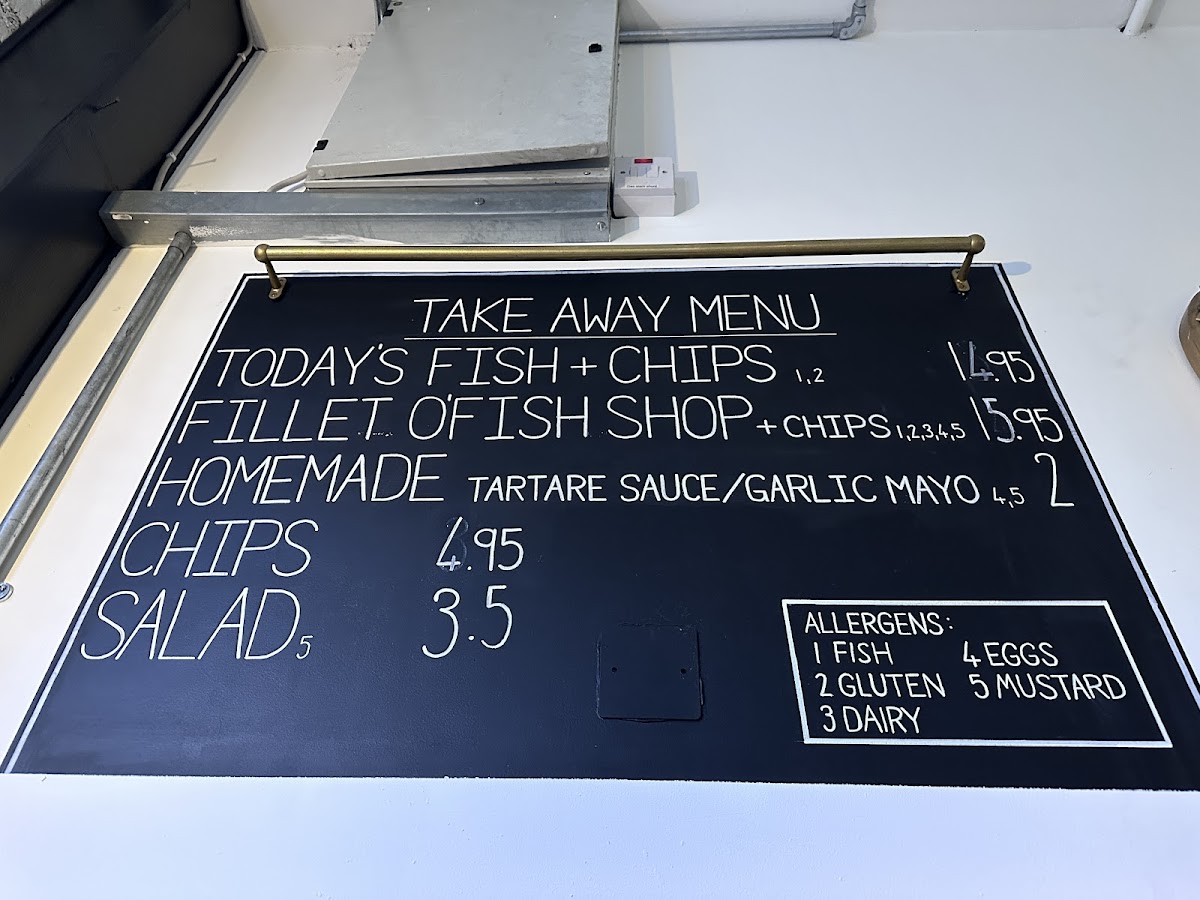 TAKE AWAY MENU
TODAY'S FISH + CHIPS 1,2 14.95
FILLET O'FISH SHOP + CHIPS 1,2,3,4,5 15.95
HOMEMADE TARTARE SAUCE/GARLIC MAYO 4,5 2
CHIPS 4.95
SALAD 5 3.5
ALLERGENS:
1 FISH 4 EGGS
2 GLUTEN 5 MUSTARD
3 DAIRY